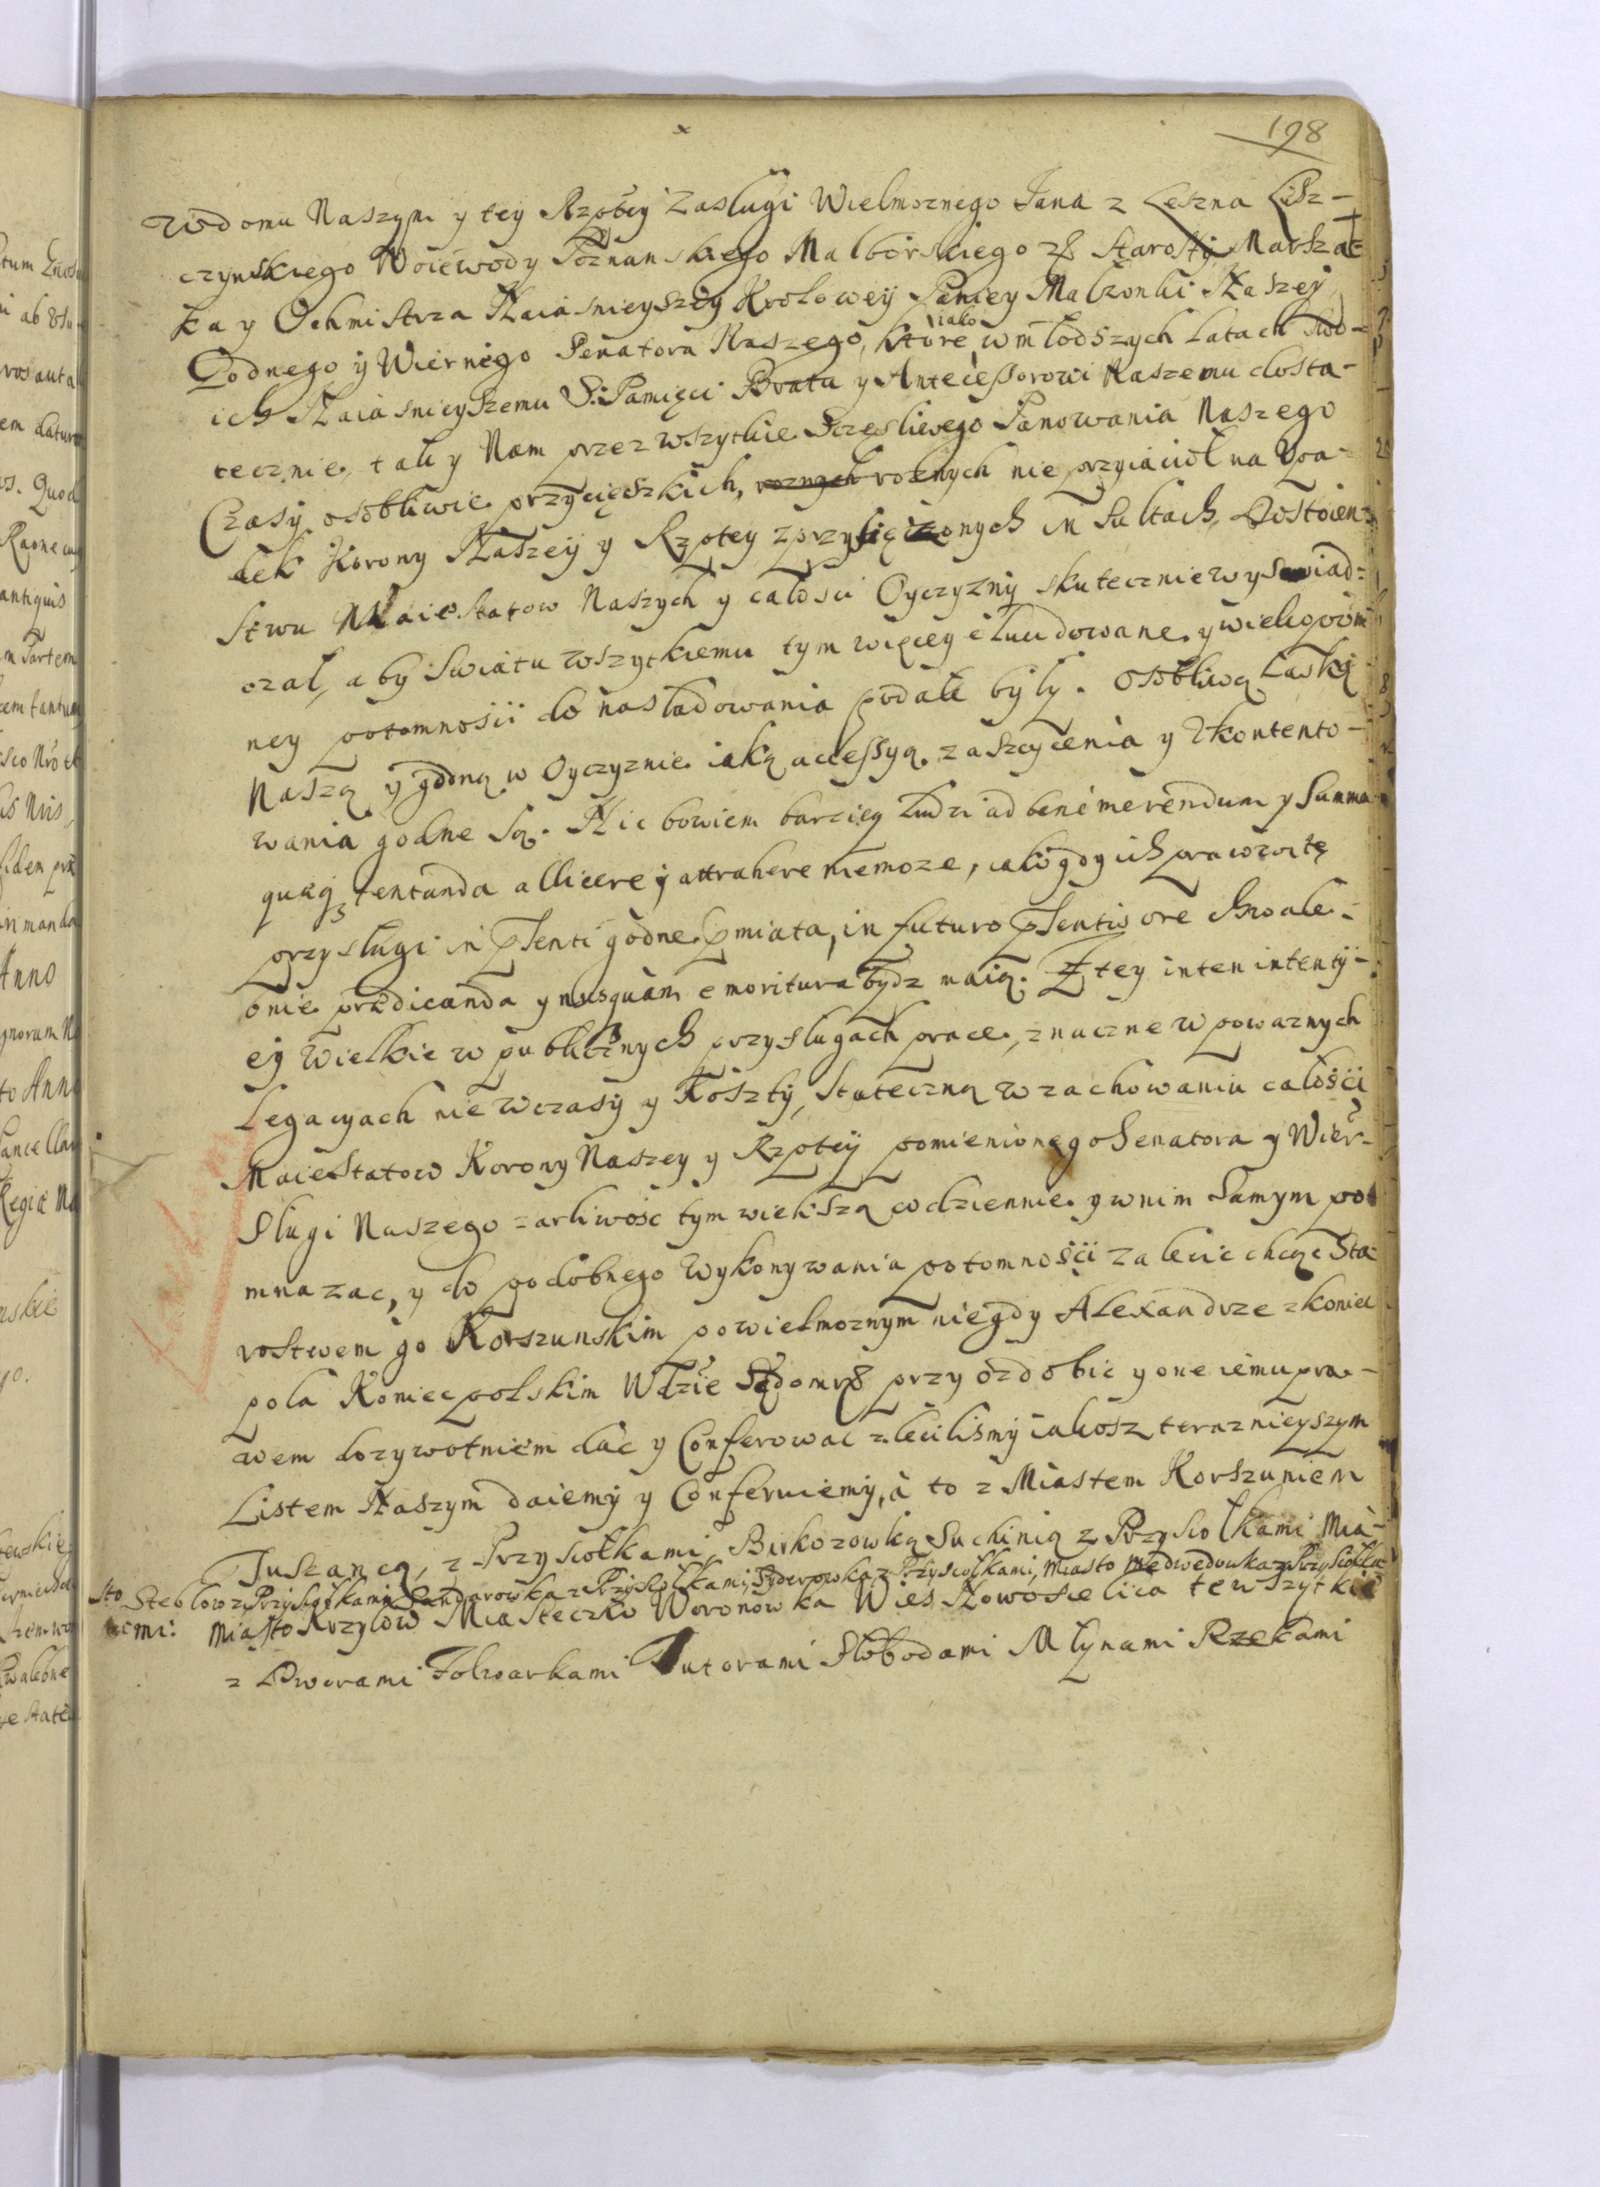 198
Wiadomu Naszym y tey Rzptey Zasługi Wielmoznego Jana z Leszna Lesz-
czynskiego Woiewody Poznanskiego Malborskiego &c Starosty Marszał-
ka y Ochmistrza Naiasnieyszey Krolowey Paniey Malzonki Naszey,
Godnego y Wiernego Senatora Naszego, ktore iako w młodszych latach swo-
ich Naiasnieyszemu S: Pamięci Bratu y Antecessorowi Naszemu dosta-
tecznie, tak y Nam przez wszytkie Szczęsliwego Panowania Naszego
Czasy, osobliwie przycięszkich, roznych roznych nie przyiacioł na Upa-
dek Korony Naszey y Rzptey zprzysiężonych in sultach, Dostoien-
stwu Maiestatow Naszych y całosci Oyczyzny skutecznie wyswiad-
czał, aby Swiatu wszytkiemu tym więcey elucidowane, y wiekopom
ney potomnosci do nasladowania podałe były. Osobliwą Łaską
Naszą y godną w Oyczyznie iaką accessyą zaszczycenia y Zkontento-
wania godne są. Nic bowiem barziey ludzi ad bene merendum y Summa
quaeq3 tentanda allicere y attrahere niemoze, iako gdy ich prawowite
przysługi in psenti godne pmiata, in futuro psentiv ore chwale-
bnie praedicanda y nusquam emoritura bydz maią. Z tey inten intenty-
ey Wielkie w publicznych przysługach prace, znaczne w powaznych
Legacyach niewczasy y Koszty, Stateczną w zachowaniu całosci
Maiestatow Korony Naszey y Rzptey pomienionego Senatora y Wier-
Sługi Naszego zarliwosc tym większą codziennie, y w nim Samym po
mnazac, y do podobnego Wykonywania potomnosci zalecic chcąc Sta-
rostwem go Korszunskim po wielmoznym niegdy Alexandrze z koniec
pola Koniecpolskim Wdzie Sędomrs przyozdobic y one iemu pra-
wem dozywotniem dac y Conferowac zlecilismy iakosz teraznieyszym
Listem Naszym daiemy y Conferuiemy, a to z Miastem Korszuniem
z Przysiołkami, Birkozowką Suchinią z Przysiołkami Mia-
sto Steblow z Przysiołkami Sandarowka z Przysiołkami, Syderowka z Przysiołkami, Miasto Medwedowka z Przysiołka
mi: Miasto Kryzlow Miasteczko Woronowka Wies Nowosielica te wszytkie
z Dworami Folwarkami Futorami Słobodami Młynami Rzekami